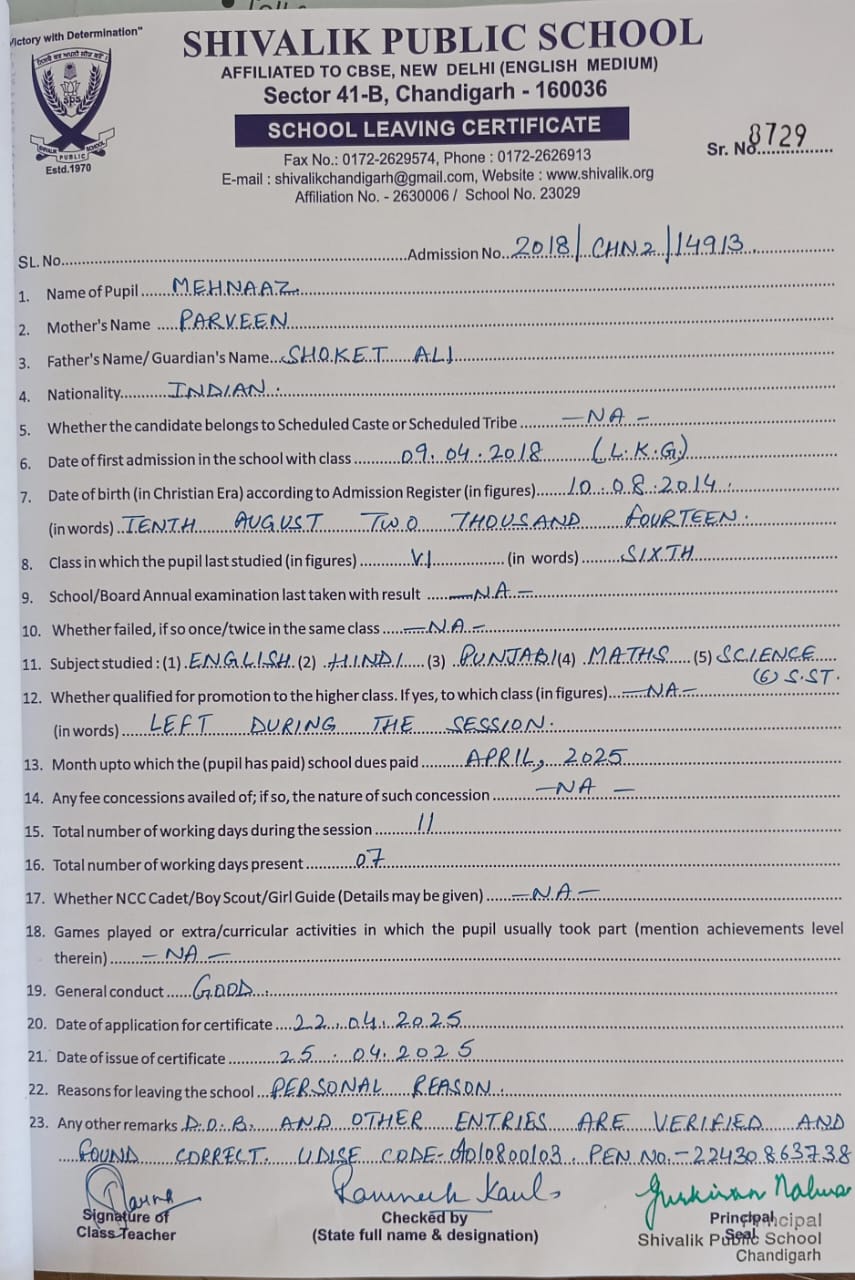 Victory with Determination"
SHIVALIK PUBLIC SCHOOL
AFFILIATED TO CBSE, NEW DELHI (ENGLISH MEDIUM)
Sector 41-B, Chandigarh - 160036
SCHOOL LEAVING CERTIFICATE
sps
SHIVALIK PUBLIC SCHOOL
Estd.1970
Sr. No. 8729
Fax No.: 0172-2629574, Phone : 0172-2626913
E-mail : shivalikchandigarh@gmail.com, Website : www.shivalik.org
Affiliation No. - 2630006 / School No. 23029
SL. No. Admission No. 2018/CHN2/14913
1. Name of Pupil MEHNAAZ
2. Mother's Name PARVEEN
3. Father's Name/ Guardian's Name SHOKET ALI
4. Nationality INDIAN.
5. Whether the candidate belongs to Scheduled Caste or Scheduled Tribe -NA-
6. Date of first admission in the school with class 09.04.2018 (L.K.G.)
7. Date of birth (in Christian Era) according to Admission Register (in figures) 10.08.2014.
(in words) TENTH AUGUST TWO THOUSAND FOURTEEN.
8. Class in which the pupil last studied (in figures) VI (in words) SIXTH
9. School/Board Annual examination last taken with result -NA-
10. Whether failed, if so once/twice in the same class -NA-
11. Subject studied : (1) ENGLISH (2) HINDI (3) PUNJABI (4) MATHS (5) SCIENCE
(6) S.ST.
12. Whether qualified for promotion to the higher class. If yes, to which class (in figures) -NA-
(in words) LEFT DURING THE SESSION.
13. Month upto which the (pupil has paid) school dues paid APRIL, 2025
14. Any fee concessions availed of; if so, the nature of such concession -NA-
15. Total number of working days during the session 11
16. Total number of working days present 07
17. Whether NCC Cadet/Boy Scout/Girl Guide (Details may be given) -NA-
18. Games played or extra/curricular activities in which the pupil usually took part (mention achievements level
therein) -NA-
19. General conduct GOOD.
20. Date of application for certificate 22.04.2025
21. Date of issue of certificate 25.04.2025
22. Reasons for leaving the school PERSONAL REASON.
23. Any other remarks D.O.B. AND OTHER ENTRIES ARE VERIFIED AND
FOUND CORRECT. UDISE CODE- 04010800103. PEN NO.-22430863738
Ramneek Kaul
Signature of Checked by Principal Principal
Class Teacher (State full name & designation) Seal
Shivalik Public School
Chandigarh